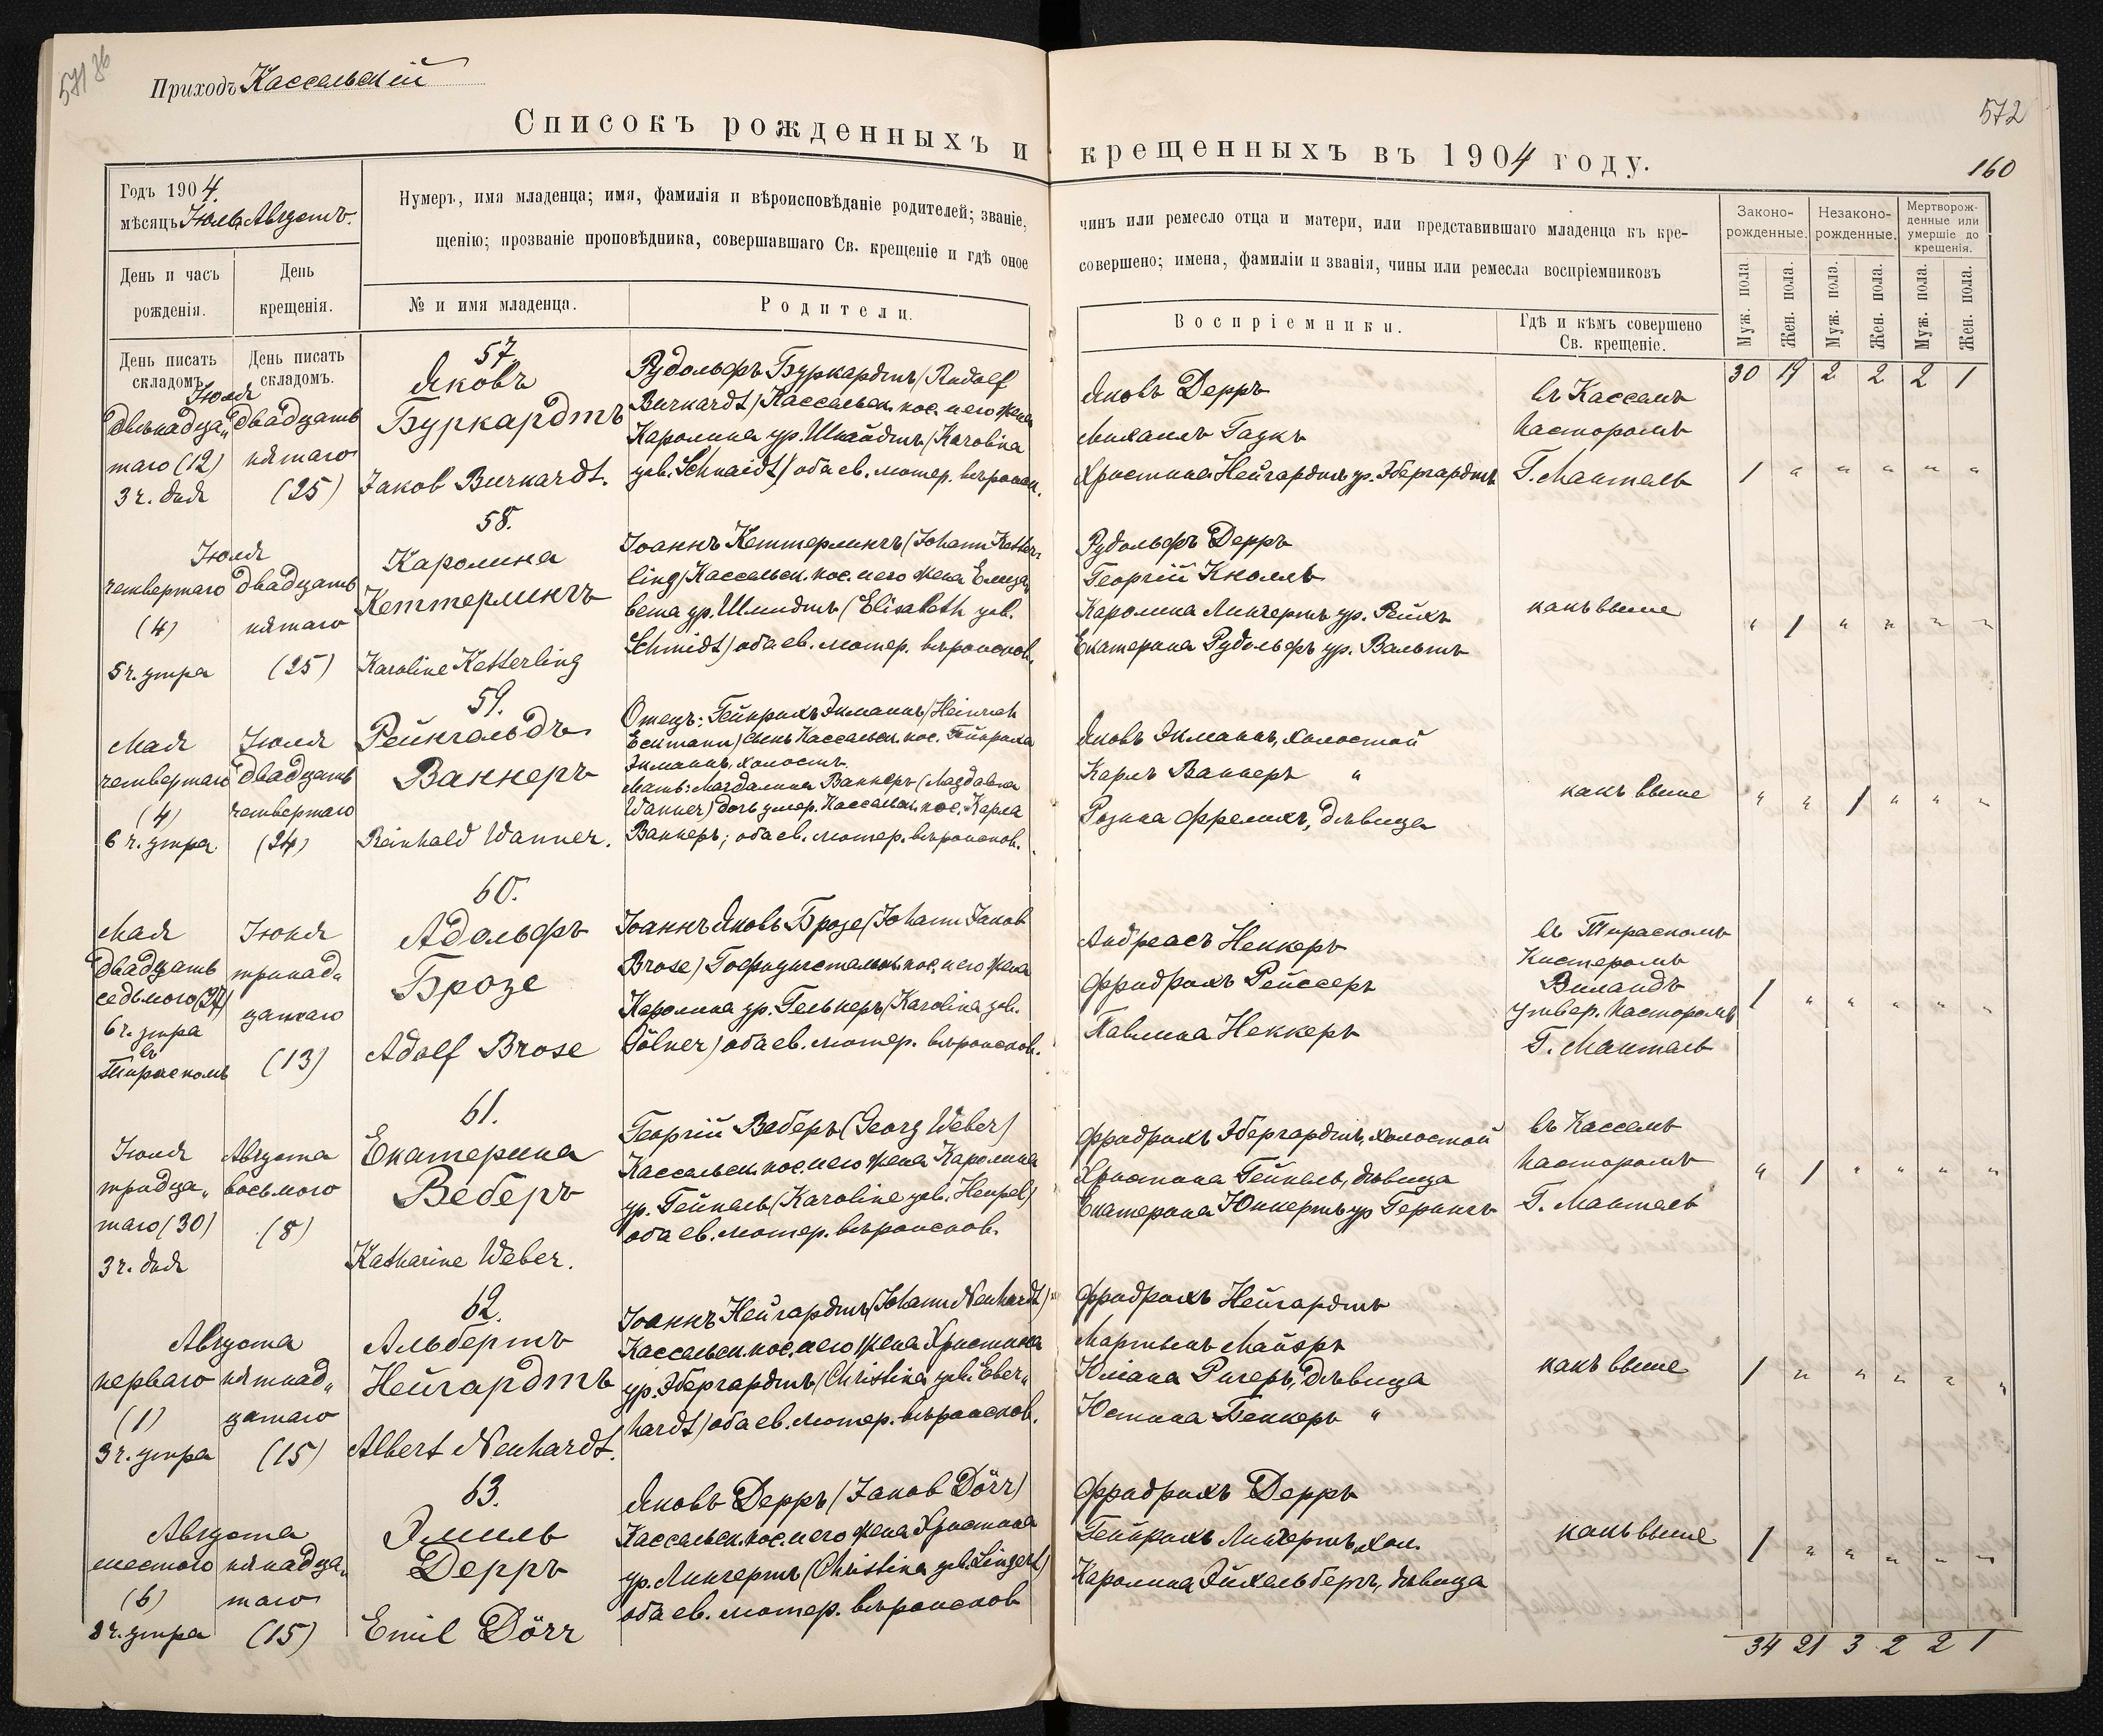 Приходъ Кассельскій
572
160
Списокъ рожденныхъ и крещенныхъ въ 1904 году.
Годъ 1904.
мѣсяцъ Іюль Августъ.
Нумеръ, имя младенца; имя, фамилія и вѣроисповѣданіе родителей; званіе, чинъ или ремесло отца и матери, или представившаго младенца къ кре-
щенію; прозваніе проповѣдника, совершавшаго Св. крещеніе и гдѣ оное совершено; имена, фамиліи и званія, чины или ремесла воспріемниковъ
Законо-
рожденные.
Незаконо-
рожденные.
Мертворож-
денные или
умершіе до
крещенія.
Муж. пола.
Жен. пола.
Муж. пола.
Жен. пола.
Муж. пола.
Жен. пола.
День и часъ
рожденія.
День
крещенія.
№ и имя младенца.
Родители.
Воспріемники.
Гдѣ и кѣмъ совершено
Св. крещеніе.
День писать
складомъ.
День писать
складомъ.
30 19 2 2 2 1
Іюля
двѣнадца„
таго (12)
3 ч. дня
двадцать
пятаго
(25)
57.
Яковъ
Буркардтъ
Jakob Burkardt.
Рудольфъ Буркардтъ (Rudolf
Burkardt) Кассельск. пос. и его жена
Каролина ур. Шнайдтъ (Karolina
geb. Schnaidt) оба ев. лютер. вѣроисп.
Яковъ Дерръ
Михаилъ Гаукъ
Христина Нейгардтъ ур. Эбергардтъ
въ Касселѣ
Пасторомъ
Г. Манталь
1 " " " " "
Іюля
четвертаго
(4)
5 ч. утра
двадцать
пятаго
(25)
58.
Каролина
Кеттерлингъ
Karoline Ketterling
Іоаннъ Кеттерлингъ (Johann Ketter-
ling) Кассельск. пос. и его жена Елиза„
вета ур. Шмидтъ (Elisabeth geb.
Schmidt) оба ев. лютер. вѣроисповѣд.
Рудольфъ Дерръ
Георгій Кнолль
Каролина Лингертъ ур. Рейхъ
Екатерина Рудольфъ ур. Вальтъ
какъ выше
" 1 " " " "
Мая
четвертаго
(4)
6 ч. утра
Іюля
двадцать
четвертаго
(24)
59.
Рейнгольдъ
Ваннеръ
Reinhold Wanner.
Отецъ: Гейнрихъ Экманнъ (Heinrich
Eckmann) сынъ Кассельск. пос. Гейнриха
Экманнъ, холостъ.
Мать: Магдалина Ваннеръ (Magdalena
Wanner) дочь умер. Кассельск. пос. Карла
Ваннеръ; оба ев. лютер. вѣроисповѣд.
Яковъ Экманнъ, холостой
Карлъ Ваннеръ "
Розина Фрелихъ, дѣвица
какъ выше
" " 1 " " "
Мая
двадцать
седьмого (27)
6 ч. утра
въ
Тирасполѣ
Іюня
тринад„
цатаго
(13)
60.
Адольфъ
Брозе
Adolf Brose
Іоаннъ Яковъ Брозе (Johann Jakob
Brose) пос. и его жена
Каролина ур. Гельнеръ (Karolina geb.
Gölner) оба ев. лютер. вѣроисповѣд.
Андреасъ Неккеръ
Фридрихъ Рейссеръ
Павлина Неккеръ
въ Тирасполѣ
Кистеромъ
Виландъ
утвер. Пасторомъ
Г. Манталь
1 " " " " "
Іюля
тридца„
таго (30)
3 ч. дня
Августа
восьмого
(8)
61.
Екатерина
Веберъ
Katharine Weber.
Георгій Веберъ (Georg Weber)
Кассельск. пос. и его жена Каролина
ур. Гейпель (Karoline geb. Heupel)
оба ев. лютер. вѣроисповѣд.
Фридрихъ Эбергардтъ, холостой
Христина Гейпель, дѣвица
Екатерина Юнкертъ ур Герингъ
въ Касселѣ
Пасторомъ
Г. Манталь
" 1 " " " "
Августа
перваго
(1)
3 ч. утра
пятнад„
цатаго
(15)
62.
Альбертъ
Нейгардтъ
Albert Neuhardt.
Іоаннъ Нейгардтъ (Johann Neuhardt)
Кассельск. пос. и его жена Христина
ур. Эбергардтъ (Christina geb. Eber„
hardt) оба ев. лютер. вѣроисповѣд.
Фридрихъ Нейгардтъ
Мартынъ Майеръ
Юліана Ригеръ, дѣвица
Юстина Беккеръ "
какъ выше
1 " " " " "
Августа
шестого
(6)
8 ч. утра
пянадца„
таго
(15)
63.
Эмиль
Дерръ
Emil Dörr
Яковъ Дерръ (Jakob Dörr)
Кассельск. пос. и его жена Христина
ур. Лингертъ (Christina geb. Lingert)
оба ев. лютер. вѣроисповѣд
Фридрихъ Дерръ
Гейнрихъ Лингертъ, хол.
Каролина Эйхельбергъ, дѣвица
какъ выше
1 " " " " "
34 21 3 2 2 1